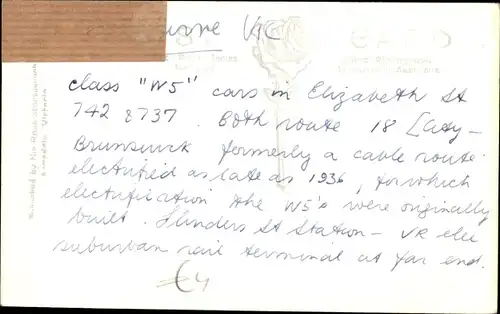 Vic
class "W5" cars in Elizabeth St
742 & 737. Both route 18 [City-
Brunswick formerly a cable route
electrified as late as 1936, for which
electrification the W5's were originally
built. Flinders St Station - VR elec
suburban rail terminal at far end.
£4